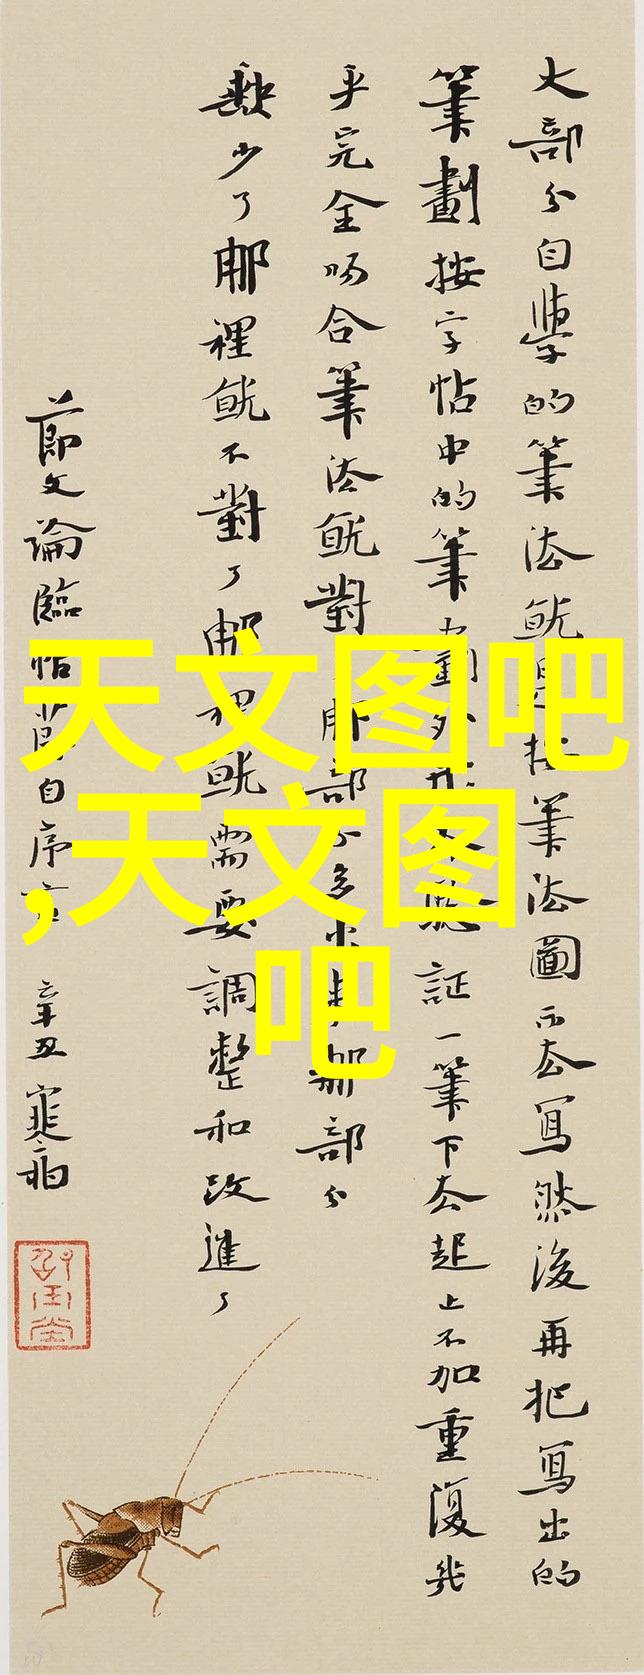 大部分自學的筆法就是按筆法圖示去寫然後再把寫出的
筆劃按字帖中的筆劃外形驗証一筆下去起止不加重復幾
乎完全吻合筆法就對那部分多出那部分
歉少了那裡就不對了那裡就需要調整和改進了
節文論臨帖節自序言 辛丑 寒
天文图吧
,天文图
吧